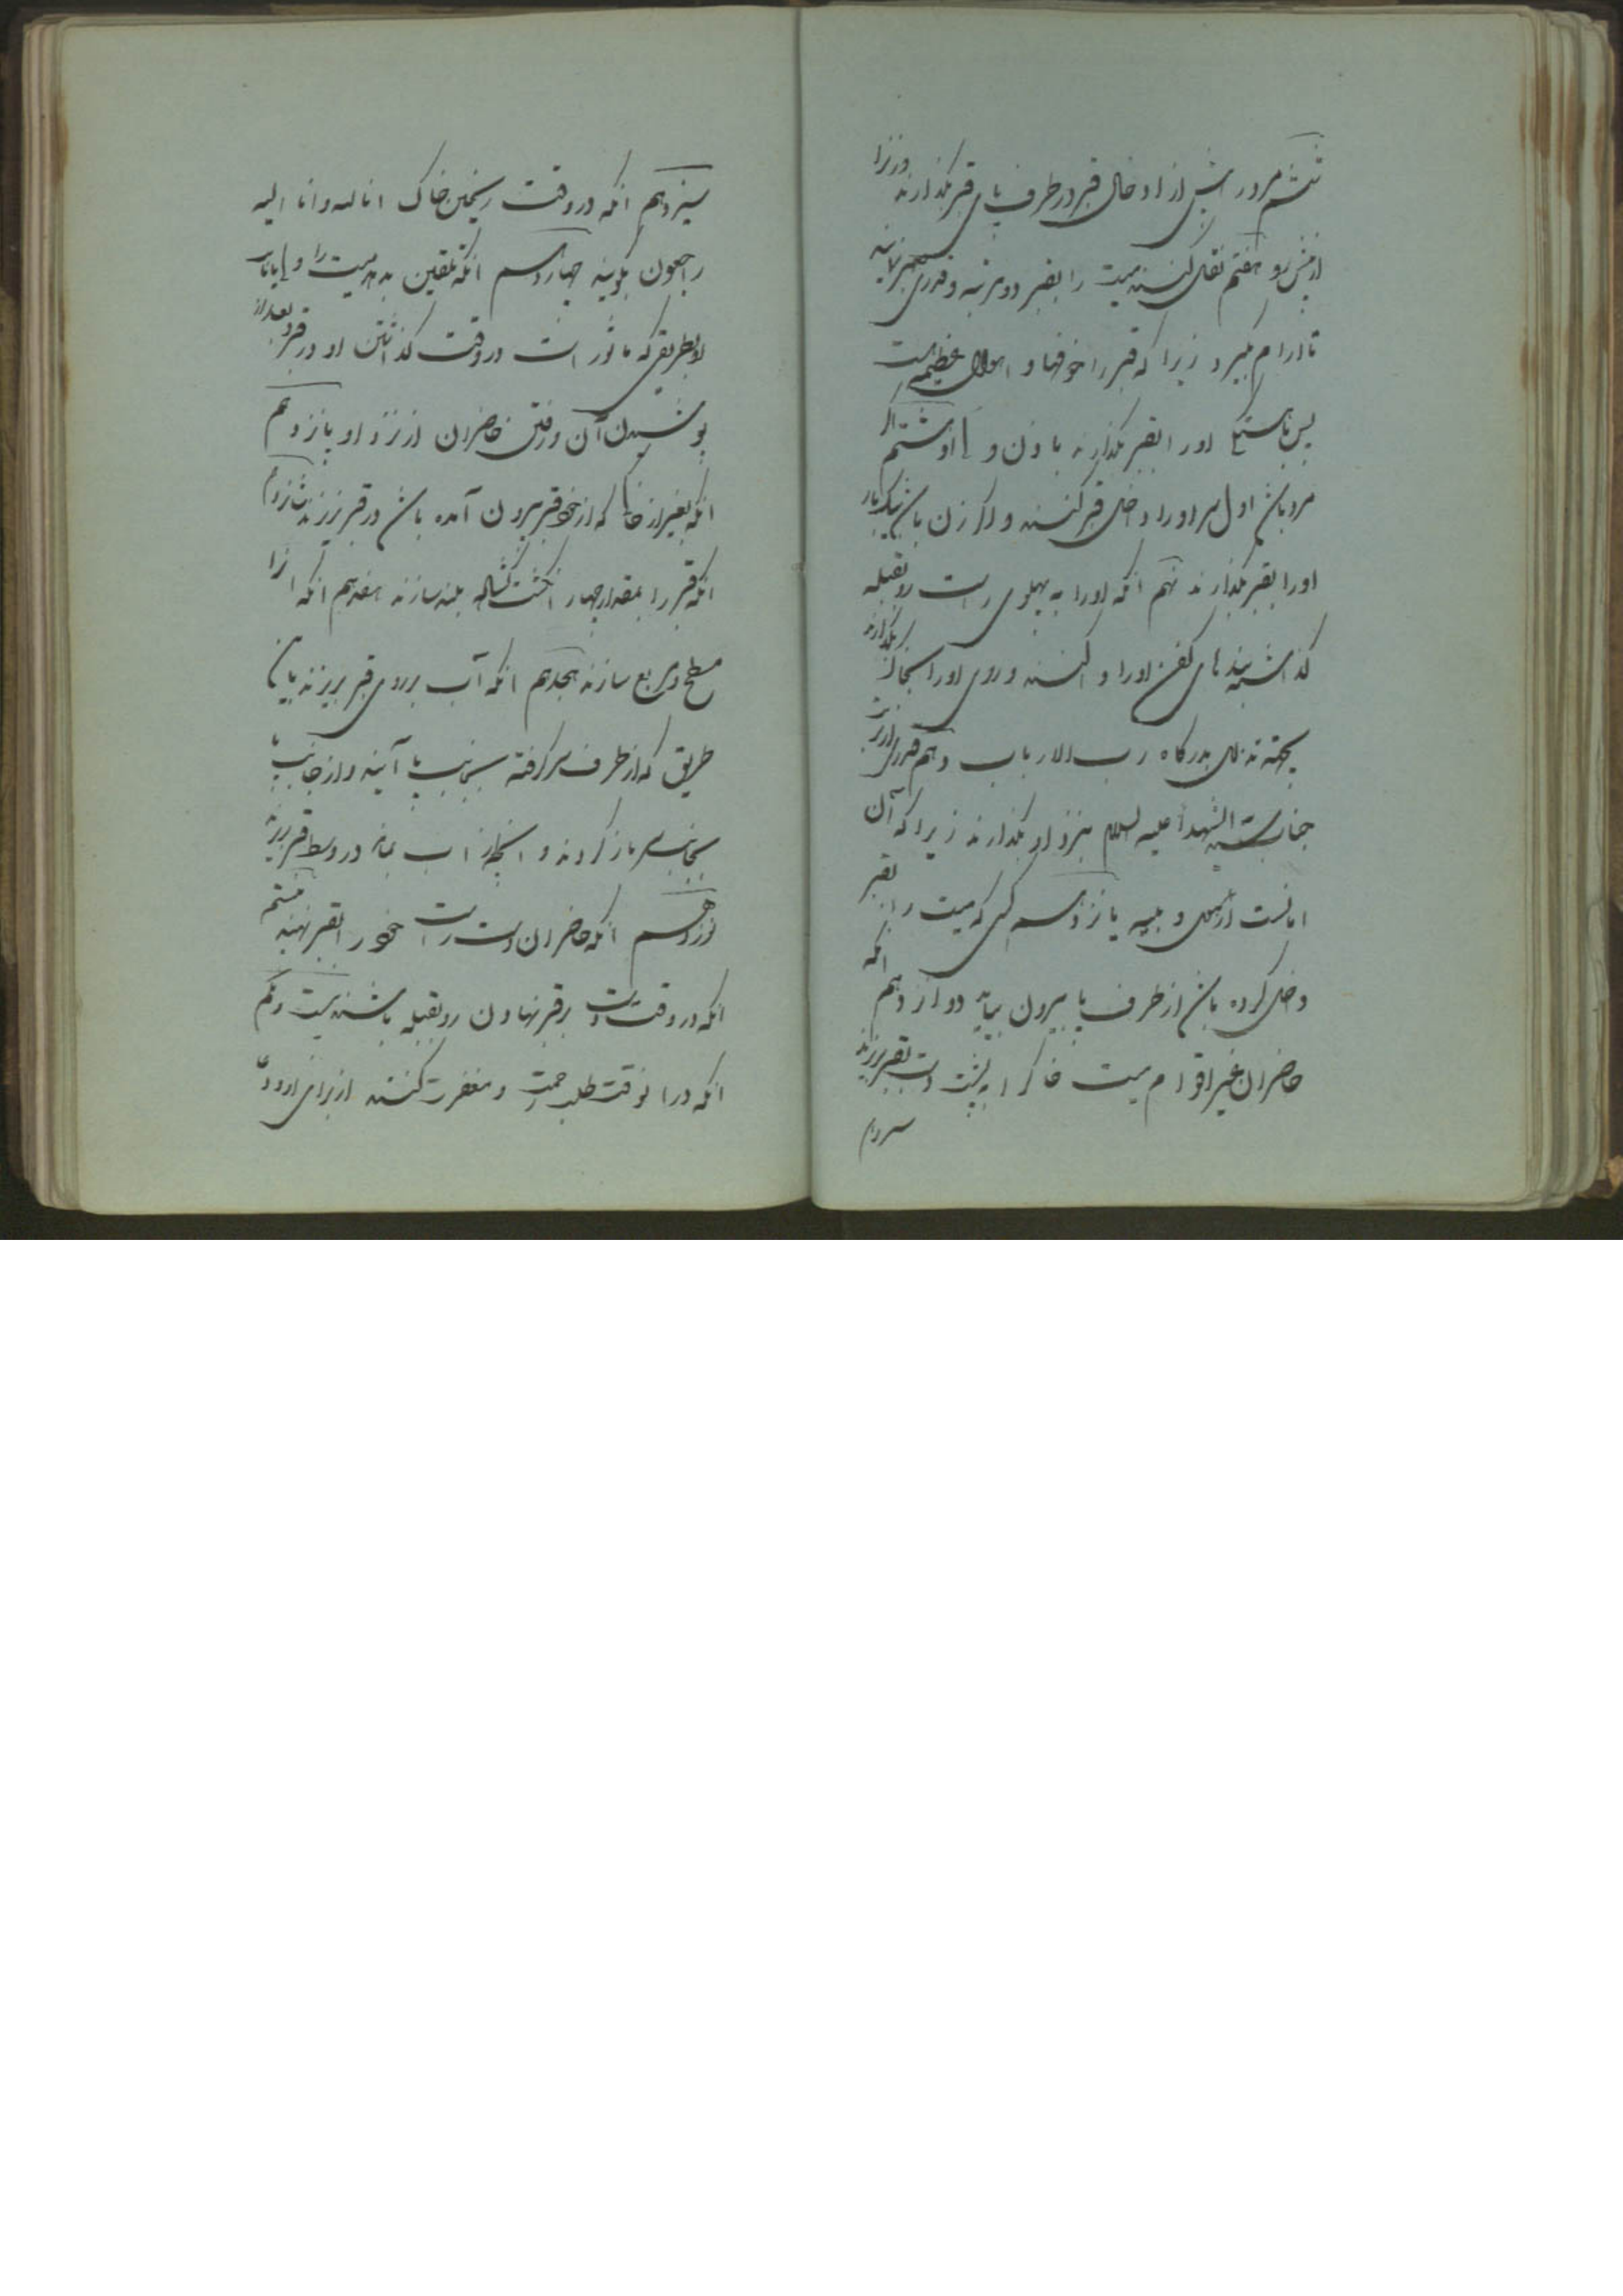 ششم مرد را پیش از ادخال قبر در طرف پای قبر بگذارند و زنرا
از پیش رو هفتم نقل کنند میت را بقبر دو مرتبه و قدری صبر نمایند
تا ارام گیرد زیرا که قبر را خوفها و اهوال عظیمه است
پس باهستگی اورا بقبر بگذارند با و هشتم اگر
مرد باشد اول سر اورا داخل قبر کنند و اگر زن باشد یکبار
اورا بقبر بگذارند نهم انکه اورا به پهلوی راست رو بقبله
گذاشته بندهای کفن اورا وا کنند و روی اورا بخاک بگذارند
بجهة تذلل بدرگاه رب الارباب دهم قدری از تربت
جناب سید الشهدا علیه السلام بنزد او بگذارند زیرا که آن
امانست از و بلیه یازدهم کسی که میت را بقبر
داخل کرده باشد از طرف پا بیرون بیاید دوازدهم انکه
حاضران غیر اقوام میت خاکرا به پشت دست بقبر بریزند
سیزدهم
سیزدهم انکه در وقت ریختن خاک انا لله و انا الیه
راجعون بگویند چهاردهم انکه تلقین بدهد میت را ولی یا نایب
او بطریقی که ماثور است در وقت گذاشتن او در قبر و بعد از
پوشیدن آن و رفتن حاضران از نزد او پانزدهم
انکه بغیر از خاکی که از خود قبر بیرون آمده باشد در قبر نریزند شانزدهم
انکه قبر را بمقدار چهار انگشت گشاده بلند سازند هفدهم انکه انرا
مسطح و مربع سازند هجدهم انکه آب بر روی قبر بریزند باین
طریق که از طرف سر گرفته بجانب پا آیند و از جانب پا
بجانب سر باز گردند و انچه از اب بماند در وسط قبر بریزند
نوزدهم انکه حاضران دست راست خود را بقبر نهند بیستم
انکه در وقت دست بر قبر نهادن رو بقبله باشند بیست و یکم
انکه در انوقت طلب رحمت و مغفرت کنند از برای او و